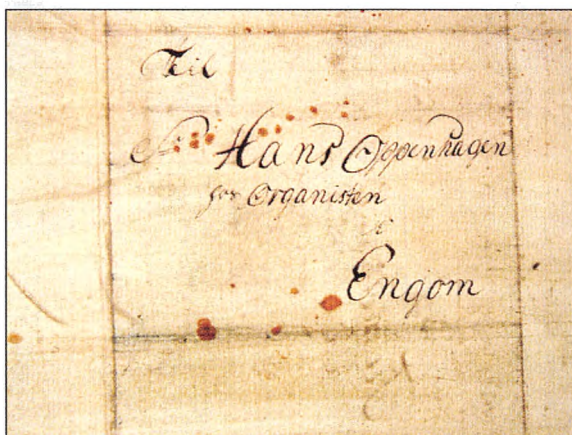 Teil
Sr Hans Oppenhagen
for Organisten
i
Engom